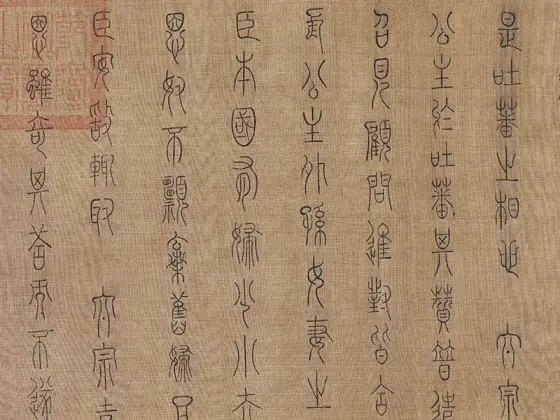 是吐蕃之相也　太宗
公主於吐蕃其贊普遣
召見顧問進對皆合
長公主外孫女妻之
臣本國有婦少小夫
恩奴不願棄舊婦且
臣安敢輒取　太宗嘉
恩雖奇其答而不遂